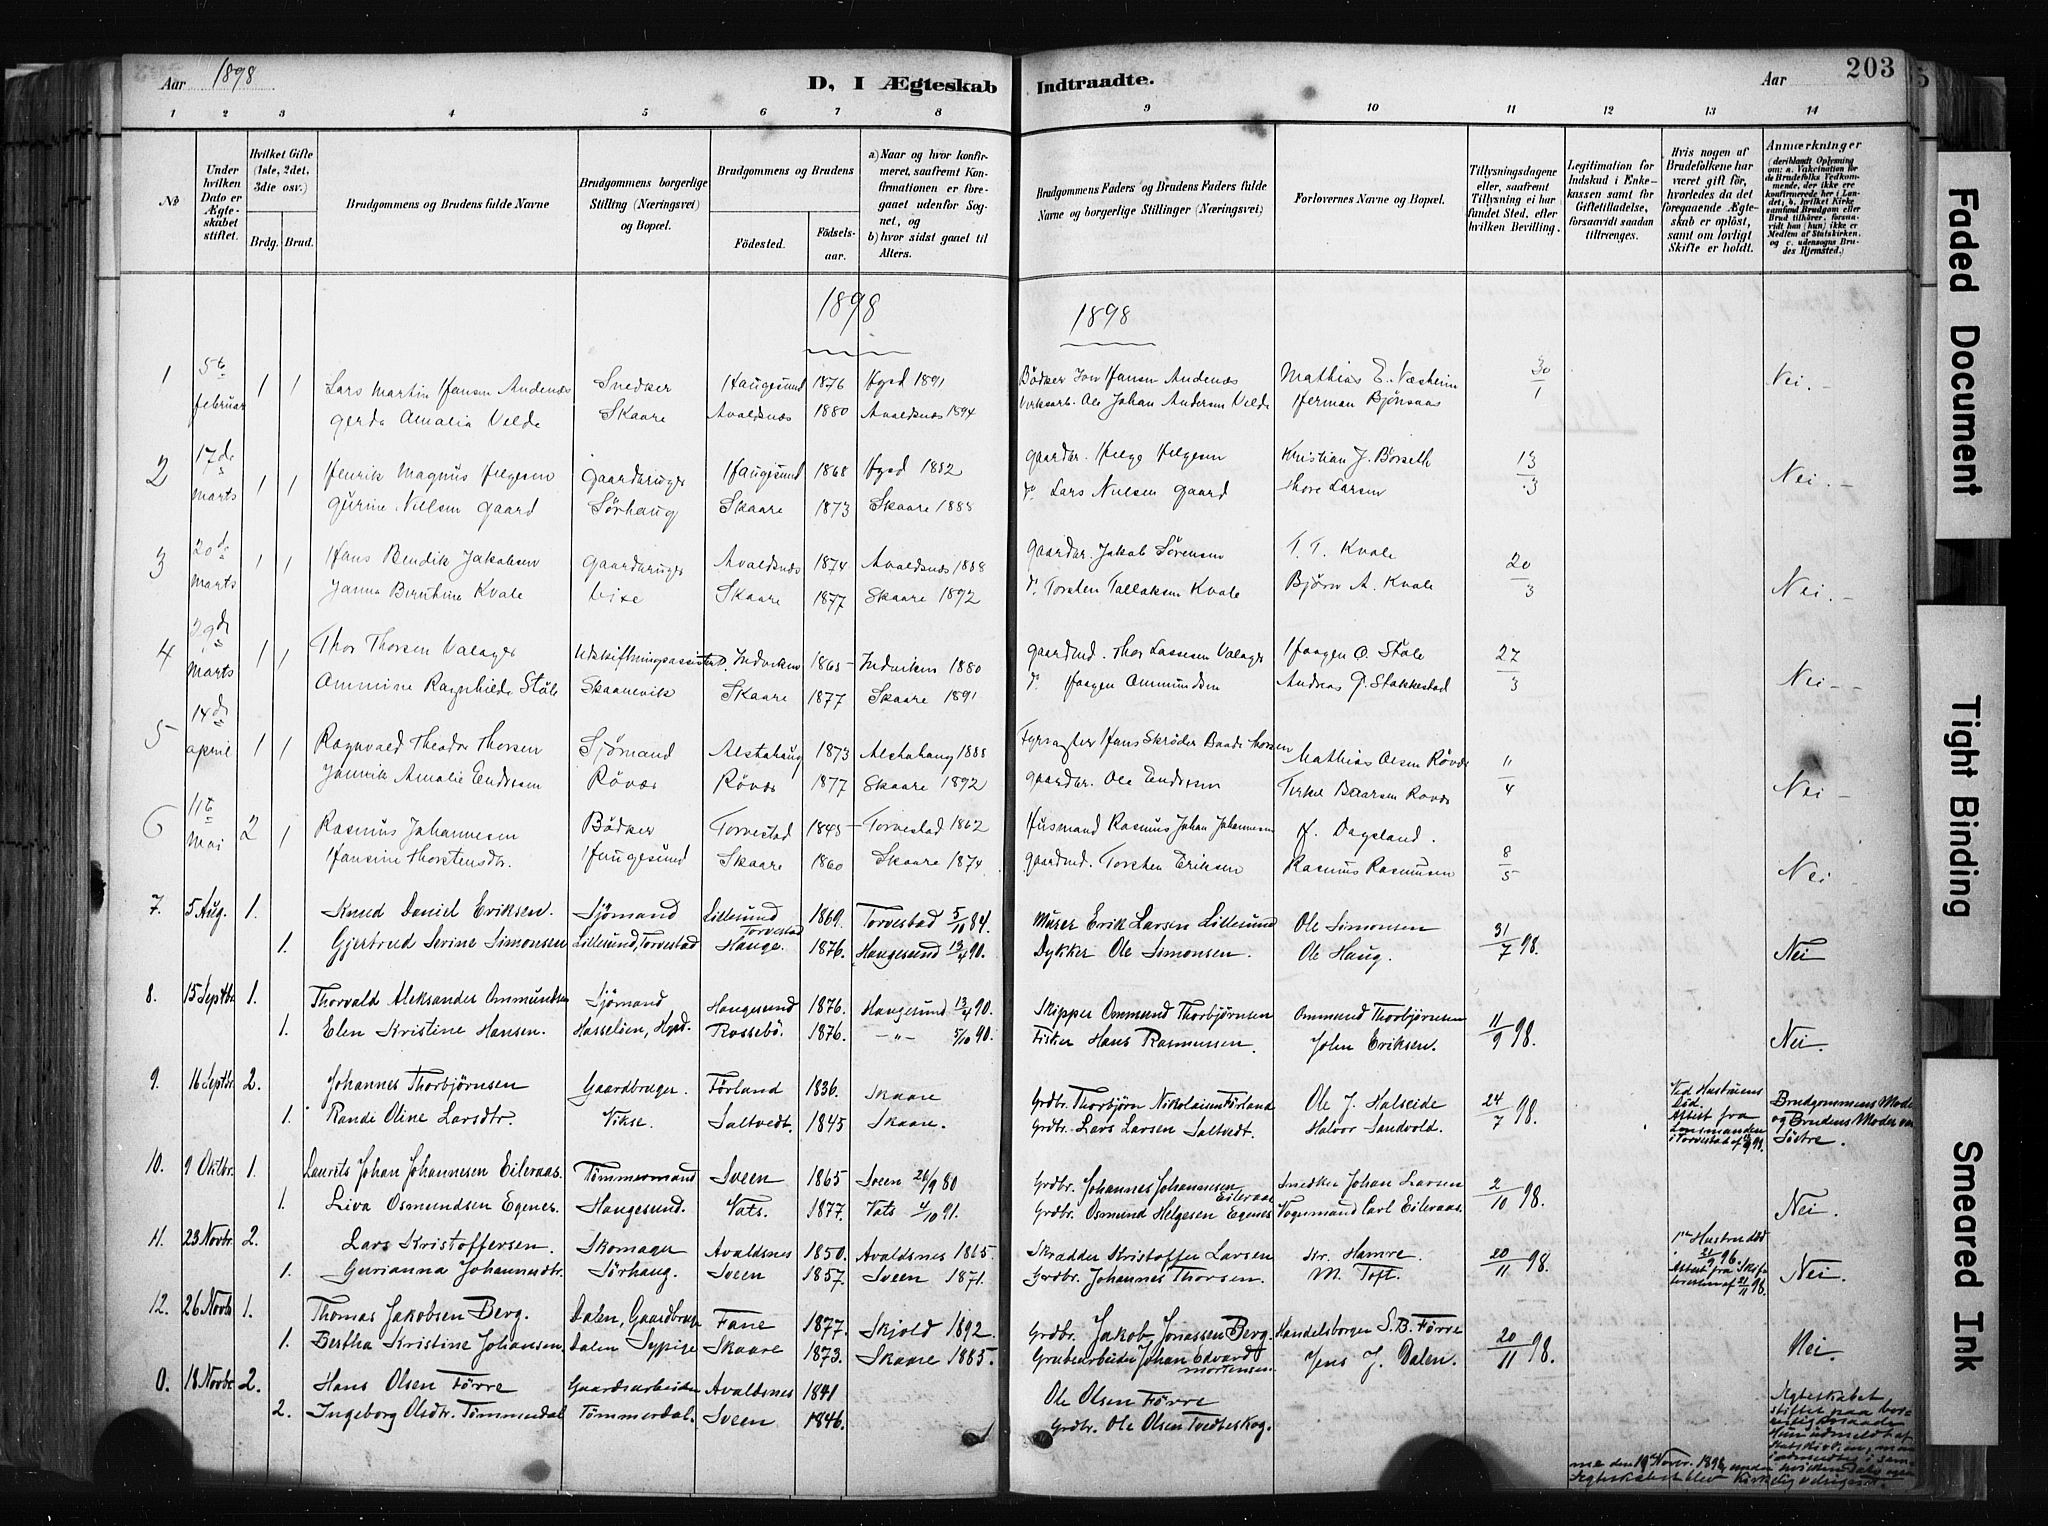 Aar 1898
D, I Ægteskab Indtraadte.
Aar
203
1 2 3 4 5 6 7 8 9 10 11 12 13 14
No
Under hvilken Dato er Ægteskabet stiftet.
Hvilket Gifte (1ste, 2det, 3die osv.)
Brdg. Brud.
Brudgommens og Brudens fulde Navne
Brudgommens borgerlige Stilling (Næringsvei) og Bopæl.
Brudgommens og Brudens
Fødested. Fødsels-aar.
a) Naar og hvor konfirmeret, saafremt Konfirmationen er foregaaet udenfor Sognet, og
b) hvor sidst gaaet til Alters.
Brudgommens Faders og Brudens Faders fulde Navne og borgerlige Stillinger (Næringsvei)
Forlovernes Navne og Bopæl.
Tillysningsdagene eller, saafremt Tillysning ei har fundet Sted, efter hvilken Bevilling.
Legitimation for Indskud i Enkekassen samt for Giftetilladelse, forsaavidt saadan tiltrænges.
Hvis nogen af Brudefolkene har været gift før, hvorledes da det foregaaende Ægteskab er opløst, samt om lovligt Skifte er holdt.
Anmærkninger
(deriblandt Oplysning om: a. Vakcination for de Brudefolks Vedkommende, der ikke ere konfirmerede her i Landet, b. hvilket Kirkesamfund Brudgom eller Brud tilhører, forsaavidt han (hun) ikke er Medlem af Statskirken, og c. udensogns Brudes Hjemsted.)
1898 1898
1 5te februar 1 1 Lars Martin Hansen Andenæs Snedker Haugesund 1876 Hgsd 1891 Bödker Jon Hansen Andenæs Mathias E. Næsheim 30/1 Nei.-
Gerda Amalia Velde Skaare Avaldsnæs 1880 Avaldsnæs 1894 Verksarb. Ole Johan Andersen Velde Herman Bjönsaas
2 17de marts 1 1 Henrik Magnus Helgesen Gaardbruger Haugesund 1868 Hgsd 1882 Gaardbr. Helge Helgesen Kristian J. Börseth 13/3 Nei.-
Gurine Nielsen Gaard Sörhaug Skaare 1873 Skaare 1888 do Lars Nielsen Gaard Thore Larsen
3 20de marts 1 1 Hans Bendik Jakobsen Gaardbruger Avaldsnæs 1874 Avaldsnæs 1888 Gaardbr. Jakob Sörensen T. T. Kvale 20/3 Nei.-
Janna Berntine Kvale Vixe Skaare 1877 Skaare 1892 do Torsten Tallaksen Kvale Björn A. Kvale
4 29de marts 1 1 Thor Thorsen Valager Udskiftningsassistent Indviken 1865 Indviken 1880 Gaardmd. Thor Lassesen Valager Haagen O. Stöle 27/3 Nei--
Ommine Ragnhilde Stöle Skaanevik Skaare 1877 Skaare 1891 do Haagen Ommundsen Andreas P. Stakkestad
5 14de april 1 1 Ragnvald Theodor Thorsen Sjömand Alstahaug 1873 Alstahaug 1888 Fyrvogter Hans Skröder Baade Thorsen Mathias Olsen Rövær 11/4 Nei-
Jannik Amalie Endresen Rövær Rövær 1877 Skaare 1892 Gaardbr. Ole Endresen Terkel Baarsen Rövær
6 11te Mai 2 1 Rasmus Johannesen Bödker Torvestad 1845 Torvestad 1862 Husmand Rasmus Johan Johannesen H. Dagsland. 8/5 Nei
Hansine Thorstensdtr. Haugesund Skaare 1860 Skaare 1874 Gaardmd. Torsten Eriksen Rasmus Rasmusen
7. 5 Aug. 1. Knud Daniel Eriksen. Sjömand Lillesund Torvestad 1869. Torvestad 5/10 84. Murer Erik Larsen Lillesund Ole Simonsen 31/7 98. Nei
1. Gjertrud Serine Simonsen Lillesund, Torvestad Hauge. 1876. Haugesund 13/4 90. Dykker Ole Simonsen. Ole Haug.
8. 15 Septbr 1. Thorvald Aleksander Ommundsen Sjömand Haugesund 1876. Haugesund 13/4 90. Skipper Ommund Thorbjörnsen Ommund Thorbjörnsen 11/9 98. Nei.
1. Elen Kristine Hansen. Hasseloen, Hgsd. Rossebö. 1876. -„- 5/10 90. Fisker Hans Rasmussen. John Eriksen.
9. 16 Septbr. 2. Johannes Thorbjörnsen Gaardbruger. Förland 1836. Skaare Grdbr. Thorbjörn Nikolaisen Förland Ole J. Halseide 24/7 98. Ved Hustruens Död. Attest fra Lensmanden i Torvestad Brudgommens Moder og Brudens Moder var Söstre.
1. Randi Oline Larsdtr. Vikse. Saltvedt. 1845 Skaare. Grdbr. Lars Larsen Saltvedt. Halvor Sandvold.
10. 9 Oktbr. 1. Laurits Johan Johannesen Eileraas. Tömmermand Sveen 1865 Sveen 26/9 80 Grdbr. Johannes Johannesen Eileraas Snedker Johan Larsen 2/10 98. Nei.
1. Liva Osmundsen Egenes. Haugesund. Vats. 1877. Vats 4/10 91. Grdbr. Osmund Helgesen Egenes Vognmand Carl Eileraas.
11. 23 Novbr. 2. Lars Kristoffersen. Skomager Avaldsnes 1850. Avaldsnes 1865. Skrædder Kristoffer Larsen Kr. Hamre. 20/11 98. 1ste Hustru död 21/9 96. Attest fra Skifteretten af 21/11 98. Nei.
1. Gurianna Johannesdtr. Sörhaug. Sveen 1857. Sveen 1871. Grdbr. Johannes Thorsen. M. Toft.
12. 26 Novbr 1. Thomas Jakobsen Berg. Dalen, Gaardbruger Fane 1877. Skjold 1892. Grdbr. Jakob Jonassen Berg. Handelsborger S. B. Förre 20/11 98. Nei.
1. Bertha Kristine Johansen. Dalen Sypige Skaare 1873. Skaare 1885. Grubearbeider Johan Edvard Mortensen Jens J. Dalen.
0. 18 Novbr 2. Hans Olsen Förre Gaardsarbeider Avaldsnes 1841 Ole Olsen Förre
2. Ingeborg Olsdtr. Tömmerdal Tömmerdal. Sveen 1846. Grdbr. Ole Olsen Tvedteskog.
Ægteskabet stiftet paa borgerlig Maade Hun udmeldt af Statskirken,
den 19de Novbr. 1898, under hvilken Dato
Ægteskabet blev Kirkelig
Faded Document
Tight Binding
Smeared Ink